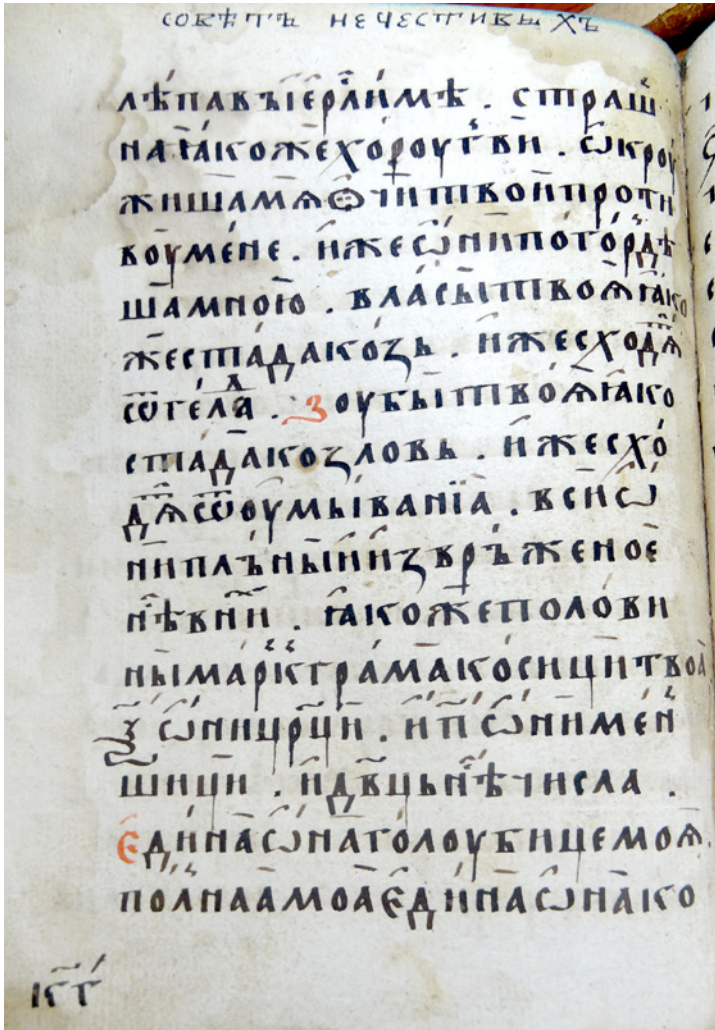 совѣтъ нечестивыхъ
лѣпа въ і҆ерⷭ҇ли́мѣ . страш
на ꙗ҆коже хорꙋгви . ѡ҆кроу
жиша мѧ ѻ҆чи твои проти
воу мене . и҆же ѡ҆ни погордѣ
ша мною . власы твоѧ ꙗ҆ко
же стада козъ . и҆же сходѧⷮ
ѿ гелаⷣ . Зоубы твоѧ ꙗ҆ко
стада козловъ . и҆же схо
дѧⷮ ѿ оумыванїа . вси ѡ҆
ни плъныи и҆звръженое
нⷭ҇ѣ в ни . ꙗ҆коже полови
ны маркграма ко сици твоа
҂ѯ҃ ѡ҆ни црци . и҆ п҃ ѡ҆ни мен
шици . и҆ дв҃ць нⷭ҇ѣ числа .
Е҆дина ѡ҆на голоубице моѧ .
полнаа моа е҆дина ѡ҆на ко
к҃г